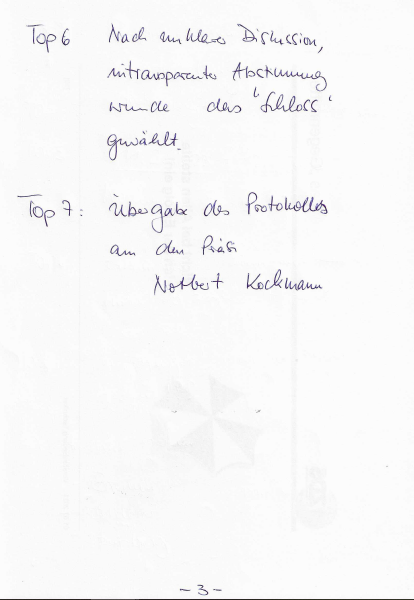 Top 6 Nach unklarer Diskussion,
intransparenter Abstimmung
wurde das "Schloss"
gewählt.
Top 7: Übergabe des Protokolles
an den Präsi
Norbert Kochmann
- 3 -